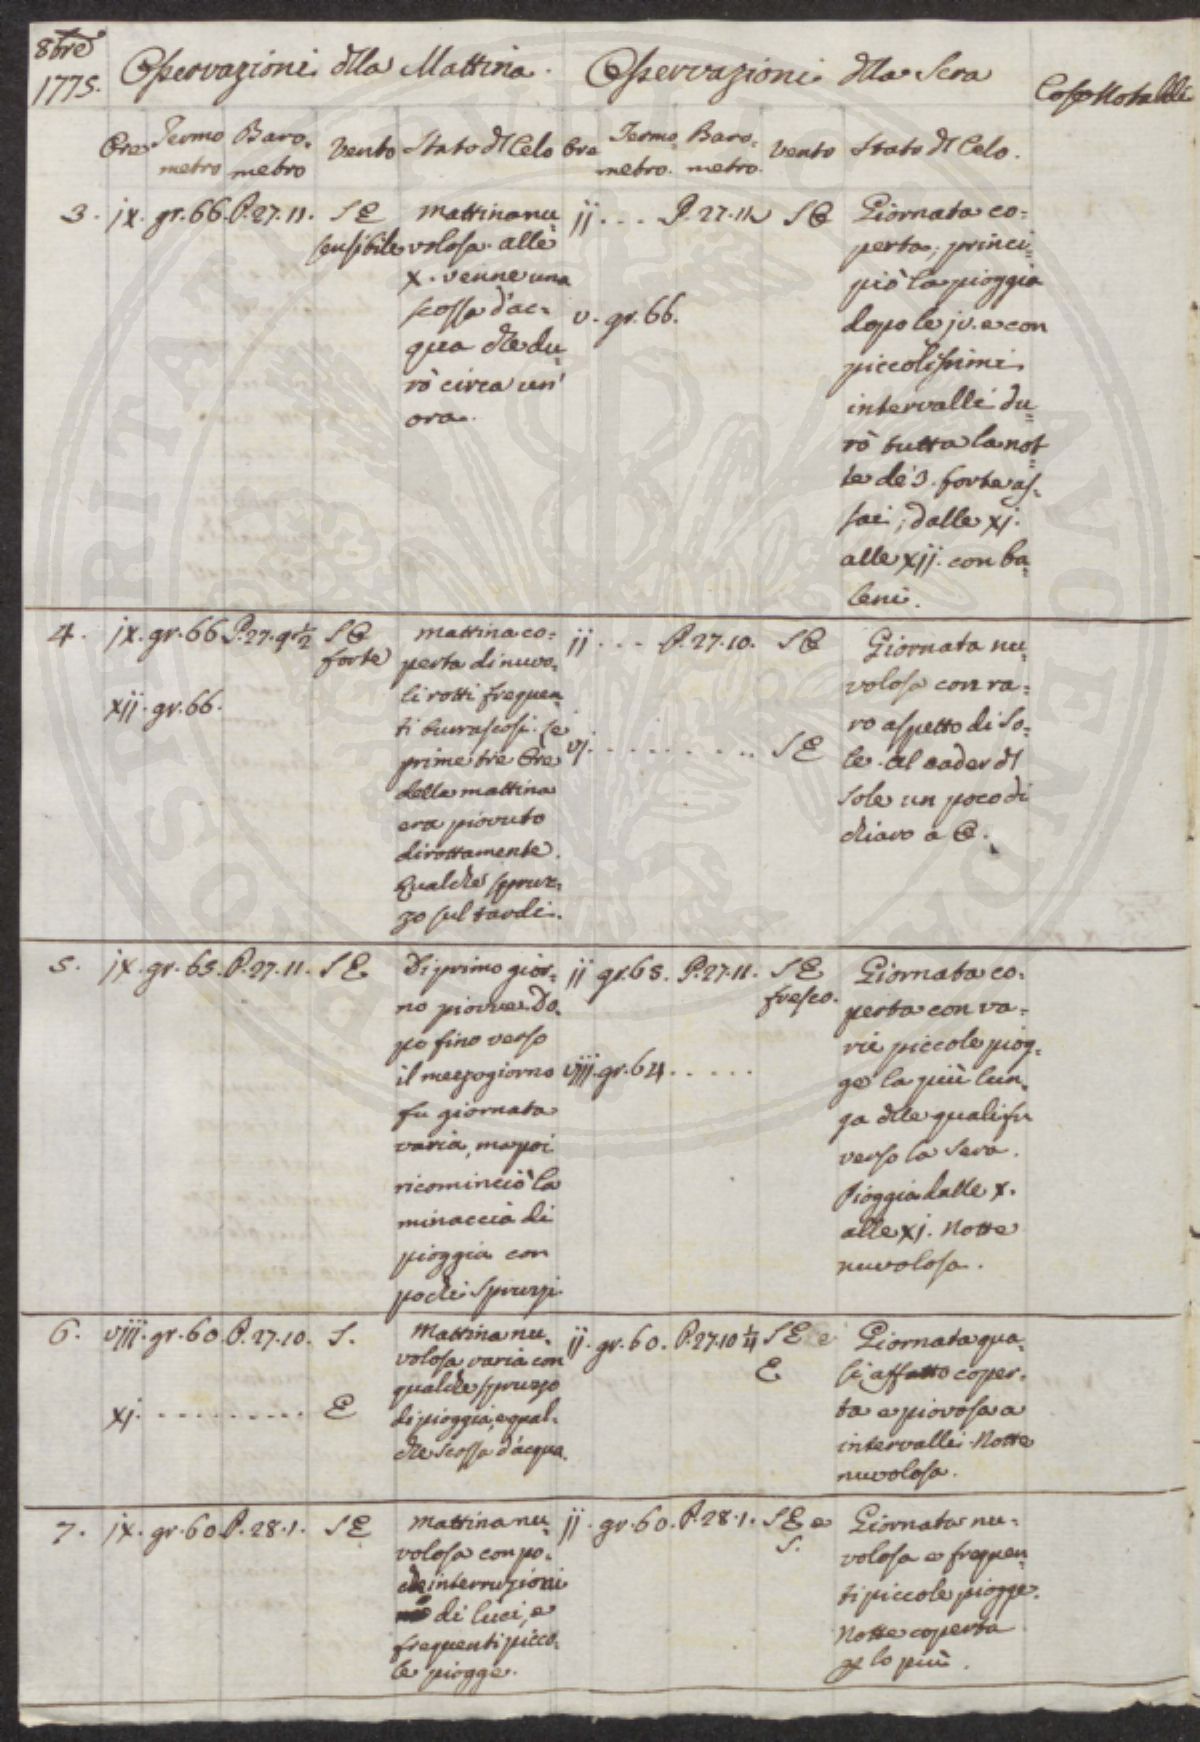 8bre
1775.
Osservazioni dlla Mattina.
Osservazioni dlla Sera
Cose Notabili
Ore Termo Baro. Vento Stato dl Celo
metro metro
Ore Termo. Baro. Vento Stato dl Celo.
metro. metro.
3. jx. gr. 66. P. 27. 11. S E
sensibile
mattina nu
volosa. alle
x. venne una
scossa d'ac=
qua che du
rò circa un'
ora.
jj . . . P. 27. 11 S E
v. gr. 66.
Giornata co=
perta; princi
piò la pioggia
dopo le jv. e con
piccolissimi
intervalli du
rò tutta la not
te de 3. forte as=
sai; dalle xj.
alle xjj. con ba
leni.
4. jx. gr. 66 P. 27. 9 1/2 S E
forte
xjj. gr. 66.
mattina co=
perta di nuvo=
li rotti frequen
ti burascosi. Le
prime tre Ore
della mattina
era piovuto
dirottamente.
Qualche spruz=
zo sul tardi.
jj . . . P. 27. 10. S E
vj. . . . . . . . . . . S E
Giornata nu=
volosa con ra=
ro aspetto di So=
le. Al cader dl
Sole un poco di
chiaro a E.
5. jx. gr. 65. P. 27. 11. S E
Di primo gior=
no piovve. Do=
po fino verso
il mezzogiorno
fu giornata
varia, ma poi
ricominciò la
minaccia di
pioggia con
pochi spruzzi
jj gr. 65. P. 27. 11. S E
fresco.
vjjj. gr. 64 . . . . .
Giornata co=
perta con va=
rie piccole piog=
ge la più lun=
ga dlle quali fu
verso la Sera.
Pioggia dalle x.
alle xj. Notte
nuvolosa.
6. vjjj. gr. 60. P. 27. 10. S.
xj. . . . . . . . . . . E
Mattina nu=
volosa varia con
qualche spruzzo
di pioggia, e qual=
che scossa d'acqua.
jj. gr. 60. P. 27. 10 1/4 S E e
E
Giornata qua=
si affatto coper=
ta e piovosa a
intervalli. Notte
nuvolosa.
7. jx. gr. 60. P. 28. 1. S E
Mattina nu=
volosa con po=
che interruzioni
di luci, e
frequenti picco=
le piogge.
jj. gr. 60. P. 28. 1. S E e
S.
Giornata nu=
volosa e frequen
ti piccole piogge.
Notte coperta
p lo più.